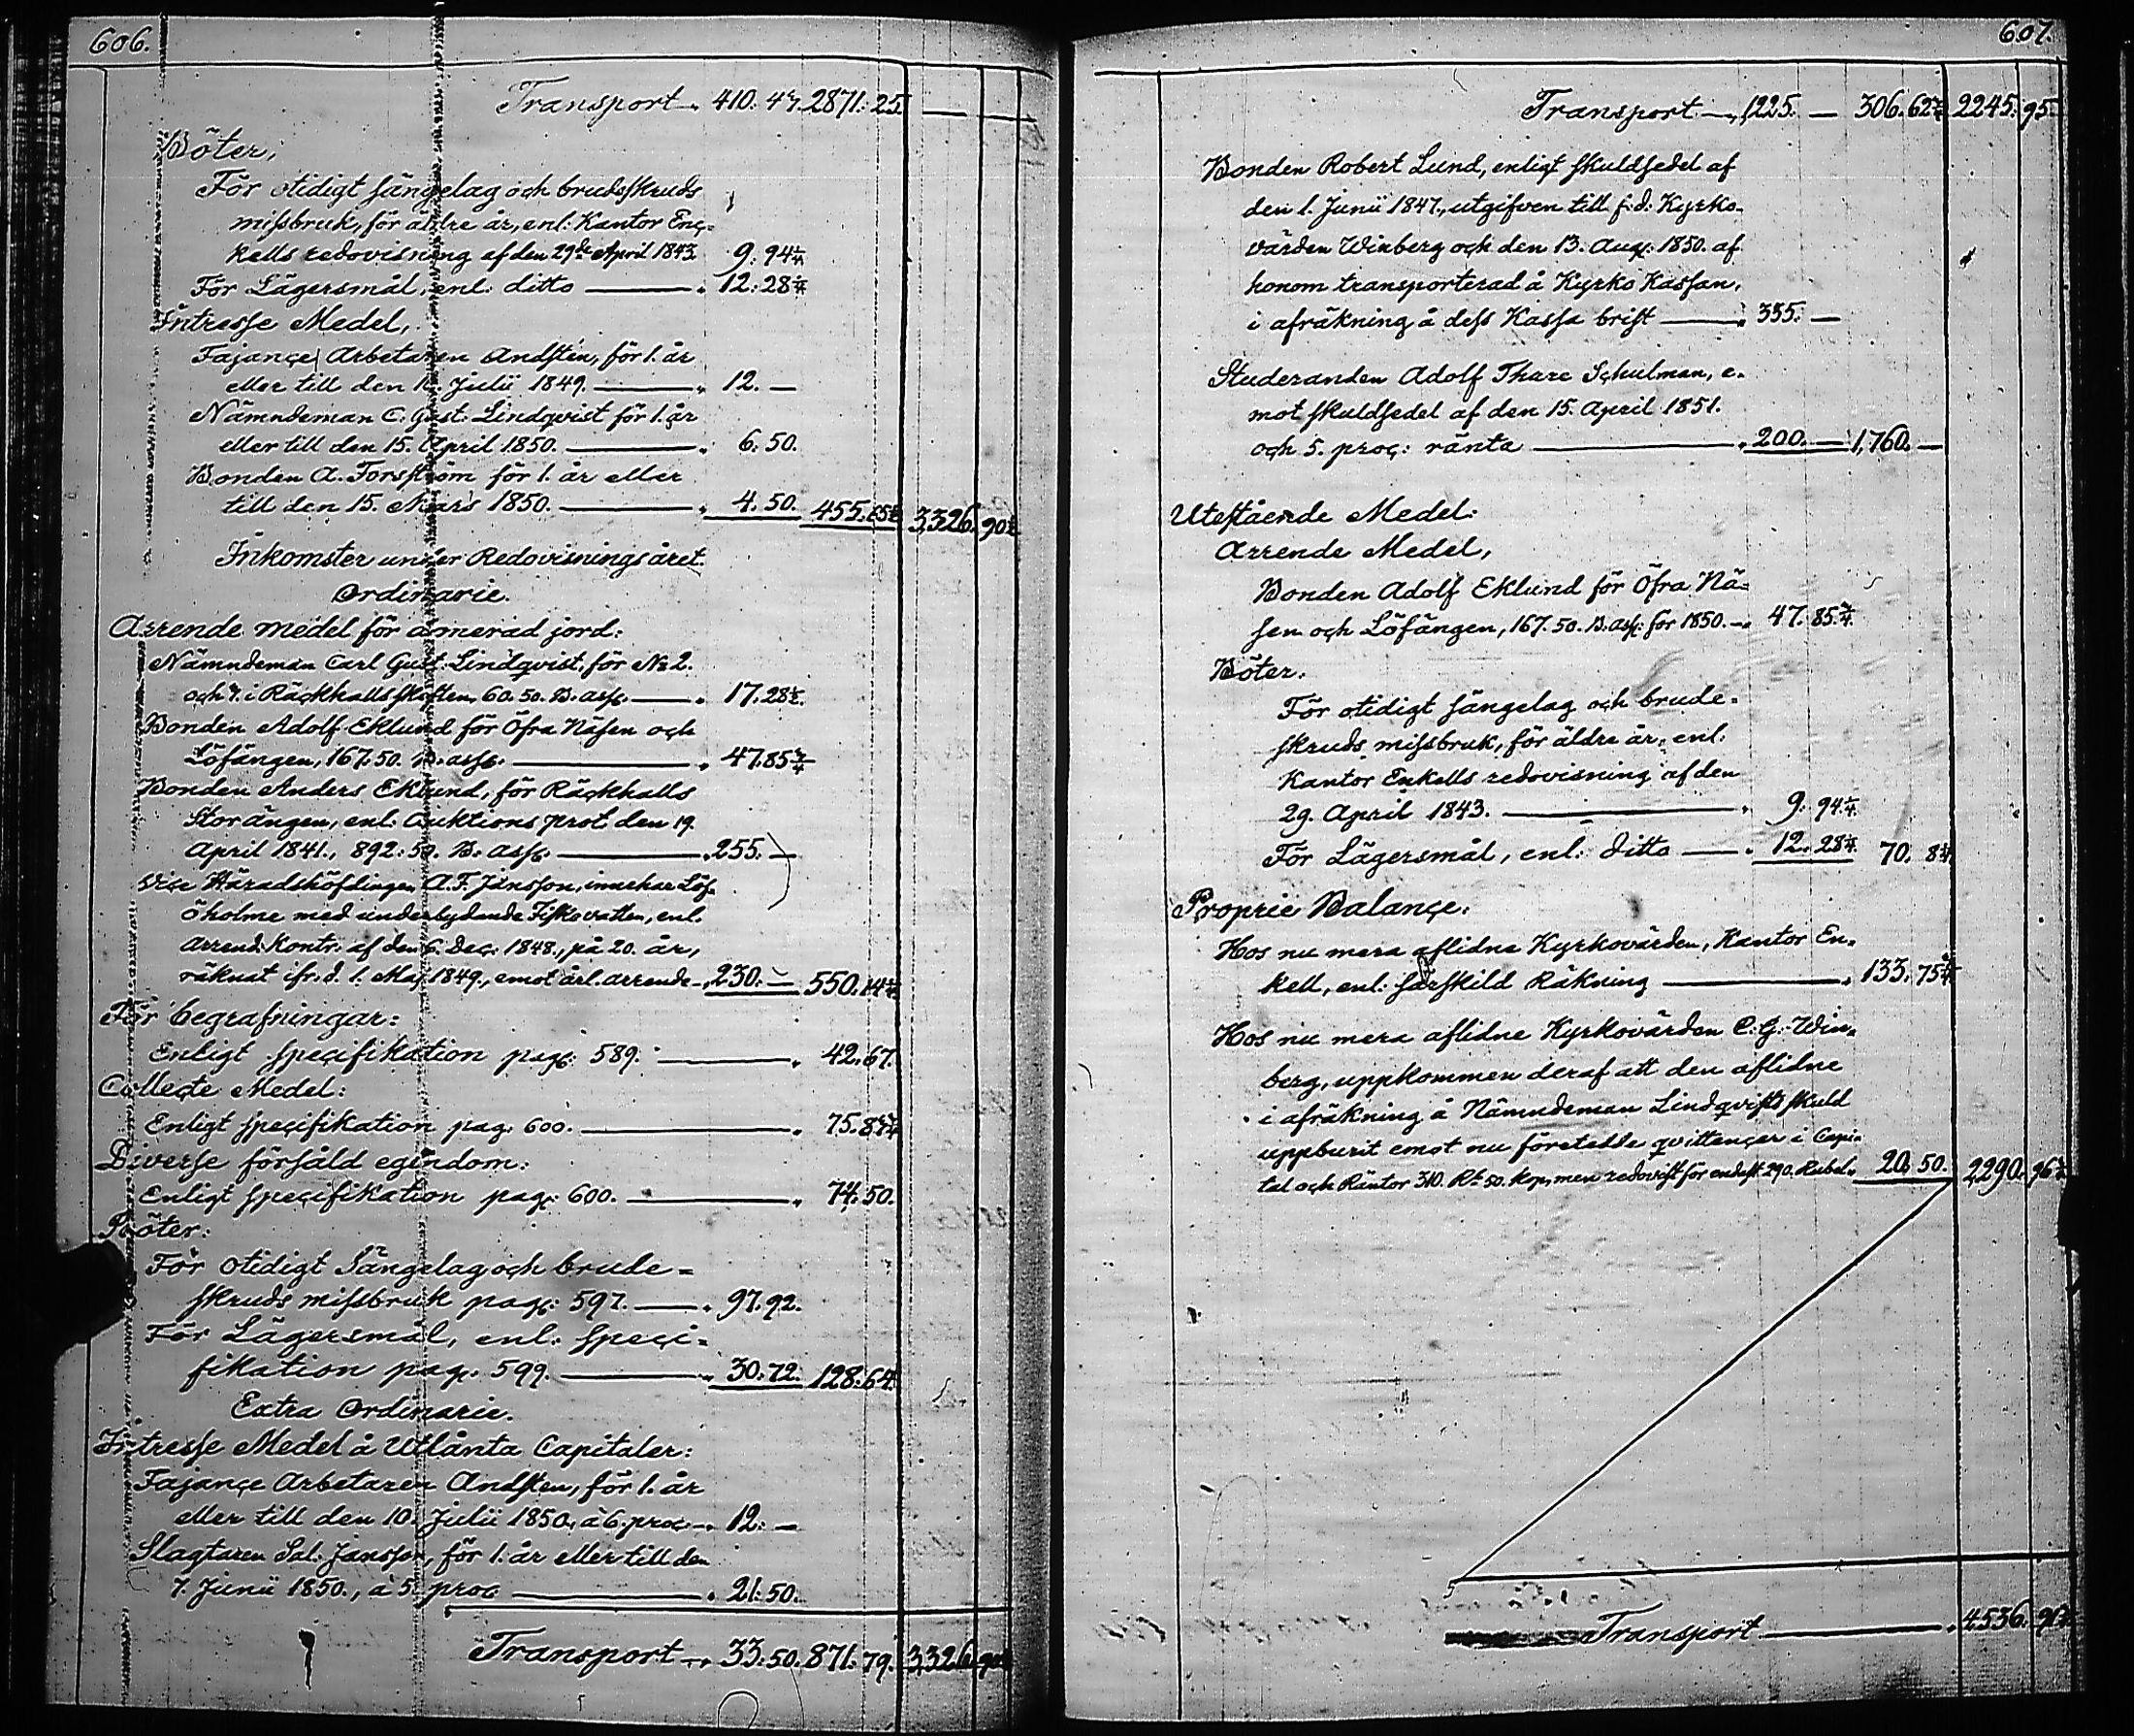 606.
Transport — 410. 47. 2871. 25.
Böter,
För otidigt sängelag och brudeskruds
missbruk, för äldre år, enl. Kantor Enc-
kells redovisning af den 29de April 1843. 9. 94 2/7
För Lägersmål, enl: ditto — 12. 28 4/7
Intresse Medel,
Fajance Arbetaren Andstén, för 1. år
eller till den 10. Julii 1849. — 12. —
Nämndeman C. Gust. Lindqvist för 1. år
eller till den 15. April 1850. — 6. 50.
Bonden A. Forsström för 1. år eller
till den 15. Mars 1850. — 4. 50. 455. 3,326. 90
Inkomster under Redovisnings året.
Ordinarie.
Arrende medel för donerad jord:
Nämndeman Carl Gust. Lindqvist, för No 2.
och 7. i Räckhalls skiften, 60. 50. B. ass. — 17. 28
Bonden Adolf Eklund för Öfra Näsen och
Löfängen, 167. 50. B. ass. — 47. 85
Bonden Anders Eklund, för Räckhalls
Storängen, enl. Auktions prot den 19.
April 1841., 892. 50. B. ass. — 255. —
Vice Häradshöfdingen A. F. Jansson, innehar Löf-
öholme med underlydande Fiskevatten, enl.
Arrend. Kontr. af den 6. Dec. 1848., på 20. år,
räknat ifr. d. 1. Maj 1849., emot årl. arrende — 230. — 550. 14
För begrafningar:
Enligt specifikation pag: 589. — 42. 67.
Collecte Medel:
Enligt specifikation pag: 600. — 75. 87
Diverse försåld egendom:
Enligt specifikation pag: 600. — 74. 50.
Böter:
För otidigt Sängelag och brude-
skruds missbruk pag: 597. — 97. 92.
För Lägersmål, enl: speci-
fikation pag. 599. — 30. 72. 128. 64.
Extra Ordinarie.
Intresse Medel å Utlånta Capitaler:
Fajance Arbetaren Andsten, för 1. år
eller till den 10. Julii 1850, à 6. proc — 12. —
Slagtaren Sal. Jansson, för 1. år eller till den
7. Junii 1850., à 5. proc — 21. 50.
Transport — 33. 50. 871. 79. 3,326. 90
607.
Transport — 1225. — 306. 62 2245. 95
Bonden Robert Lund, enligt skuldsedel af
den 1. Junii 1847., utgifven till f. d. Kyrko-
värden Winberg och den 13. Aug. 1850. af
honom transporterad å Kyrko Kassan,
i afräkning å dess Kassa brist — 335. —
Studeranden Adolf Thure Schulman, e-
mot skuldsedel af den 15. April 1851.
och 5. proc: ränta — 200. — 1,760. —
Utestående Medel:
Arrende Medel,
Bonden Adolf Eklund för Öfra Nä-
sen och Löfängen, 167. 50. B. ass. för 1850. — 47. 85
Böter.
För otidigt sängelag och brude-
skruds missbruk, för äldre år, enl.
Kantor Enkells redovisning af den
29. April 1843. — 9. 94
För Lägersmål, enl: ditto — 12. 28 70. 8
Proprie Balance:
Hos nu mera aflidne Kyrkovärden, Kantor En-
kell, enl: särskild Räkning — 133. 75
Hos nu mera aflidne Kyrkovärden C. G. Win-
berg, uppkommen deraf att den aflidne
i afräkning å Nämndeman Lindqvists skuld
uppburit emot nu företedde qvittencer i Capi-
tal och Räntor 310. Rb. 50. kop, men redovist för endast 290. Rubel. 20. 50. 2290. 96
Transport — 4536. 91